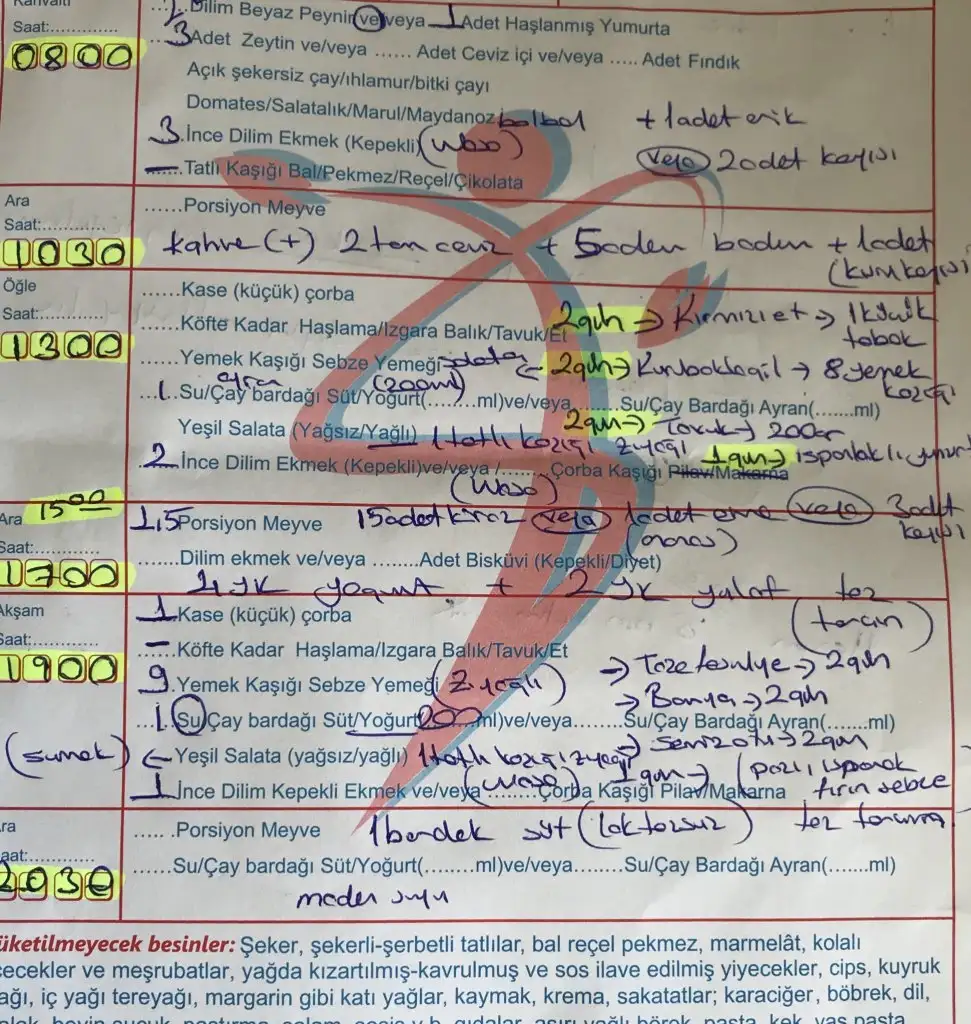 Kahvaltı
Saat:............
0800
Dilim Beyaz Peynir ve/veya 1 Adet Haşlanmış Yumurta
3 Adet Zeytin ve/veya ...... Adet Ceviz içi ve/veya ..... Adet Fındık
Açık şekersiz çay/ıhlamur/bitki çayı
Domates/Salatalık/Marul/Maydanoz bolbol + 1 adet erik
3.İnce Dilim Ekmek (Kepekli) (Wasa) veya 2 adet kayısı
—....Tatlı Kaşığı Bal/Pekmez/Reçel/Çikolata
Ara
Saat:............
1030
......Porsiyon Meyve
kahve (+) 2 tam ceviz + 5 aden badem + 1 adet
(kuru kayısı)
Öğle
Saat:............
1300
......Kase (küçük) çorba
......Köfte Kadar Haşlama/Izgara Balık/Tavuk/Et 2gün → Kırmızı et → 1 küçük
tabak
......Yemek Kaşığı Sebze Yemeği salata ← 2gün → Kurubaklagil → 8 yemek
kaşığı
ayran (200ml)
...1..Su/Çay bardağı Süt/Yoğurt(........ml)ve/veya........Su/Çay Bardağı Ayran(.......ml)
2gün → Tavuk → 200gr
Yeşil Salata (Yağsız/Yağlı) 1 tatlı kaşığı z.yağı 1gün → ıspanaklı yumurt
2.İnce Dilim Ekmek (Kepekli)ve/veya /...... Çorba Kaşığı Pilav/Makarna
(Wasa)
Ara 15 00
Saat:............
1700
1,5 Porsiyon Meyve 15 adet kiraz veya 1 adet elma veya 3 adet
kayısı
(ananas)
........Dilim ekmek ve/veya ........Adet Bisküvi (Kepekli/Diyet)
4 YK yogurt + 2 YK yulaf toz
(tarçın)
Akşam
Saat:............
1900
1 Kase (küçük) çorba
—..Köfte Kadar Haşlama/Izgara Balık/Tavuk/Et
→ Taze fasulye → 2gün
9.Yemek Kaşığı Sebze Yemeği (Z.yağlı)
→ Bamya → 2gün
...1. Su/Çay bardağı Süt/Yoğurt(200 ml)ve/veya........Su/Çay Bardağı Ayran(.......ml)
→ semizotu → 2gün
(sumak) ← Yeşil Salata (yağsız/yağlı) 1 tatlı kaşığı z.yağı
1gün → (pazı, ıspanak
1 İnce Dilim Kepekli Ekmek ve/veya (Wasa) ........Çorba Kaşığı Pilav/Makarna fırın sebze
Ara
Saat:............
2030
..... .Porsiyon Meyve 1 bardak süt (laktozsuz) toz tarçın
......Su/Çay bardağı Süt/Yoğurt(........ml)ve/veya........Su/Çay Bardağı Ayran(.......ml)
maden suyu
üketilmeyecek besinler: Şeker, şekerli-şerbetli tatlılar, bal reçel pekmez, marmelât, kolalı
çecekler ve meşrubatlar, yağda kızartılmış-kavrulmuş ve sos ilave edilmiş yiyecekler, cips, kuyruk
ağı, iç yağı tereyağı, margarin gibi katı yağlar, kaymak, krema, sakatatlar; karaciğer, böbrek, dil,